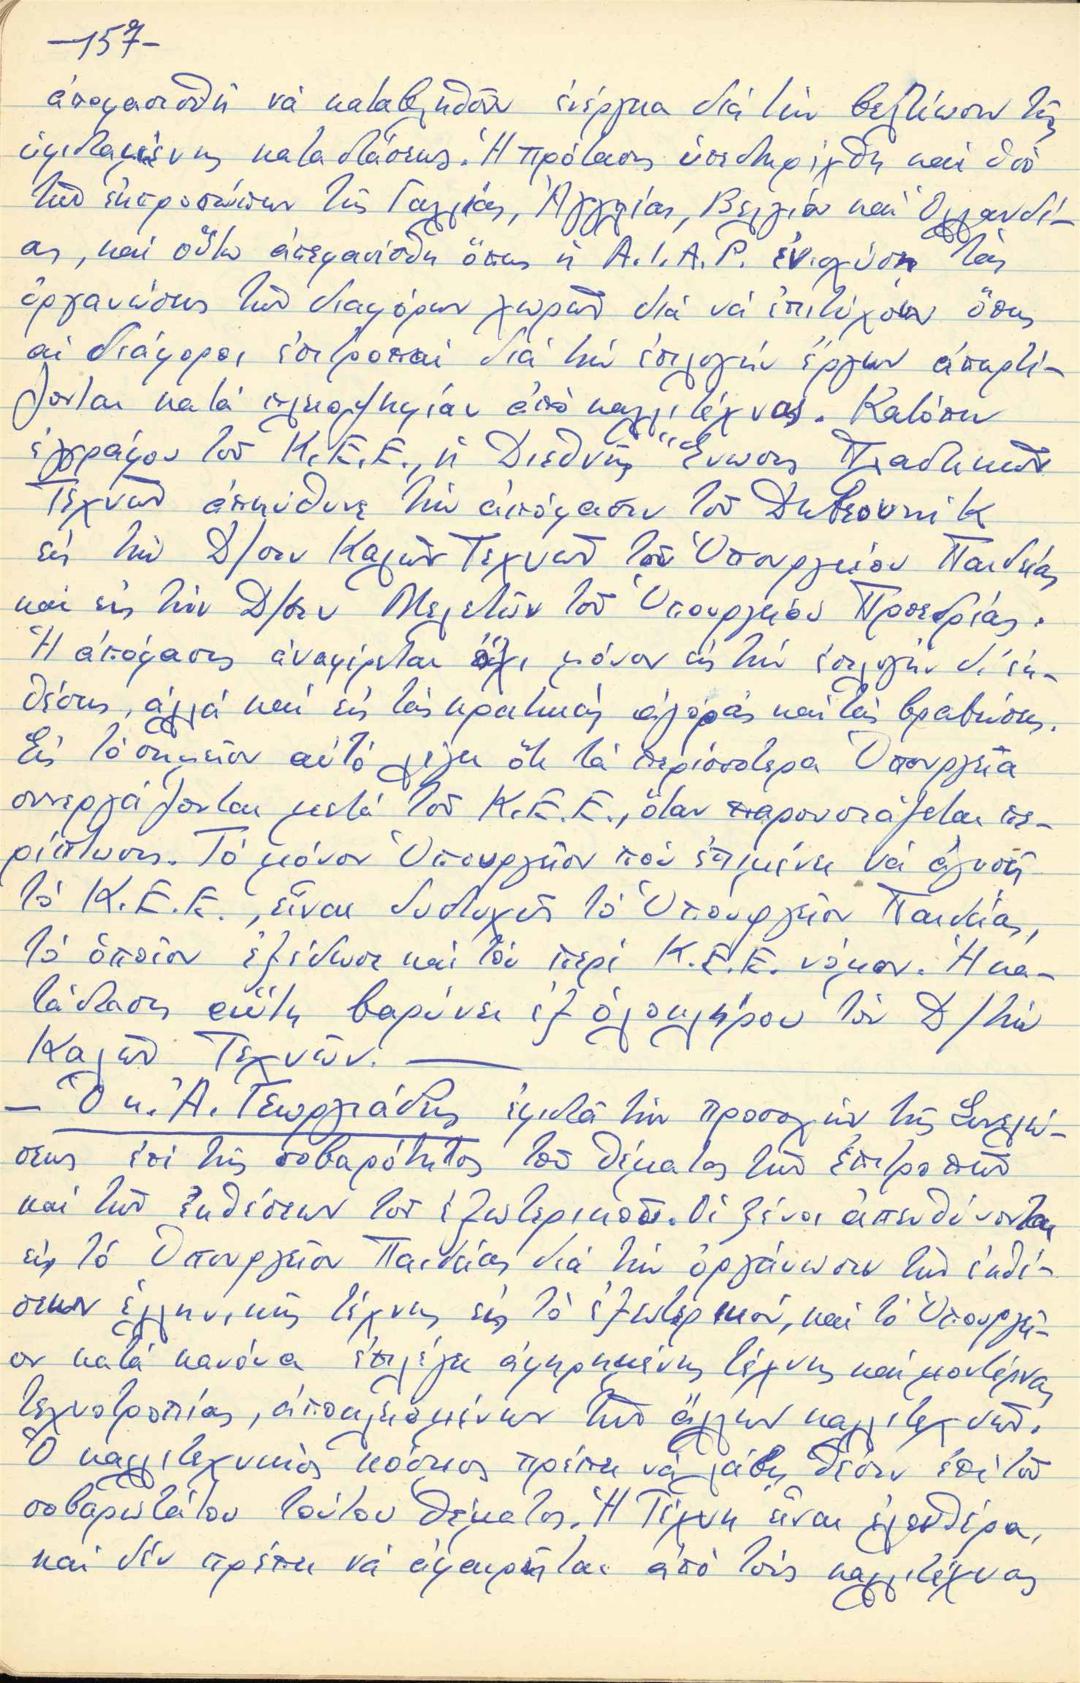 -157-
ἀποφασισθῆ νά καταβληθοῦν ἐνέργεια διά τήν βελτίωσιν τῆς
ὑφισταμένης καταστάσεως. Ἡ πρότασις ὑπεστηρίχθη καί ὑπό
τῶν ἐκπροσώπων τῆς Γαλλίας, Ἀγγλίας, Βελγίου καί Ὁλλανδί-
ας, καί οὕτω ἀπεφασίσθη ὅπως ἡ A.I.A.P. ἐνισχύση τάς
ὀργανώσεις τῶν διαφόρων χωρῶν διά νά ἐπιτύχουν ὅπως
αἱ διάφοροι ἐπιτροπαί διά τήν ἐπιλογήν ἔργων ἀπαρτί-
ζονται κατά πλειοψηφίαν ἀπό καλλιτέχνας. Κατόπιν
ἐγγράφου τοῦ Κ.Ε.Ε., ἡ Διεθνής Ἕνωσις Πλαστικῶν
Τεχνῶν ἀπηύθυνε τήν ἀπόφασιν τοῦ
εἰς τήν Δ/σιν Καλῶν Τεχνῶν τοῦ Ὑπουργείου Παιδείας
καί εἰς τήν Δ/σιν Μελετῶν τοῦ Ὑπουργείου Προεδρίας.
Ἡ ἀπόφασις ἀναφέρεται ὄχι μόνον εἰς τήν ἐπιλογήν δι' ἐκ-
θέσεις, ἀλλά καί εἰς τάς κρατικάς ἀγοράς καί τάς βραβεύσεις.
Εἰς τό σημεῖον αὐτό λέγει ὅτι τά περισσότερα Ὑπουργεῖα
συνεργάζονται μετά τοῦ Κ.Ε.Ε., ὅταν παρουσιάζεται πε-
ρίπτωσις. Τό μόνον Ὑπουργεῖον πού ἐπιμένει νά ἀγνοῆ
τό Κ.Ε.Ε., εἶναι δυστυχῶς τό Ὑπουργεῖον Παιδείας,
τό ὁποῖον ἐξέδωσε καί τόν περί Κ.Ε.Ε. νόμον. Ἡ κα-
τάστασις αὕτη βαρύνει ἐξ ὁλοκλήρου τόν Δ/τήν
Καλῶν Τεχνῶν. —
— Ὁ κ. Ἀ. Γεωργιάδης ἐφιστᾶ τήν προσοχήν τῆς Συνελεύ-
σεως ἐπί τῆς σοβαρότητος τοῦ θέματος τῶν ἐπιτροπῶν
καί τῶν ἐκθέσεων τοῦ ἐξωτερικοῦ. Οἱ ξένοι ἀπευθύνονται
εἰς τό Ὑπουργεῖον Παιδείας διά τήν ὀργάνωσιν τῶν ἐκθέ-
σεων ἑλληνικῆς τέχνης εἰς τό ἐξωτερικόν, καί τό Ὑπουργεῖ-
ον κατά κανόνα ἐπιλέγει ἀφηρημένης τέχνης καί μοντέρνας
τεχνοτροπίας, ἀποκλειομένων τῶν ἄλλων καλλιτεχνῶν.
Ὁ καλλιτεχνικός κόσμος πρέπει νά λάβη θέσιν ἐπί τοῦ
σοβαρωτάτου τούτου θέματος. Ἡ Τέχνη εἶναι ἐλευθέρα,
καί δέν πρέπει νά ἀφαιρῆται ἀπό τούς καλλιτέχνας